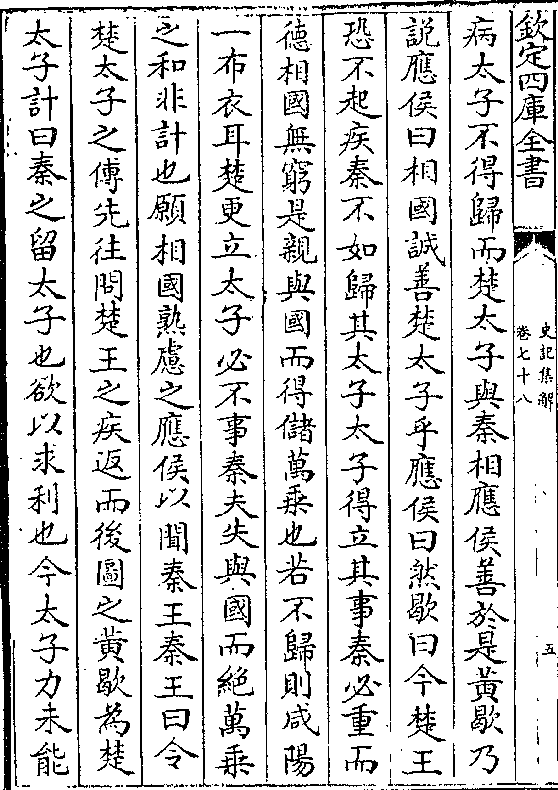 欽定四庫全書
史記集解
卷七十八
五
病太子不得歸而楚太子與秦相應侯善於是黃歇乃
説應侯曰相國誠善楚太子乎應侯曰然歇曰今楚王
恐不起疾秦不如歸其太子太子得立其事秦必重而
德相國無窮是親與國而得儲萬乗也若不歸則咸陽
一布衣耳楚更立太子必不事秦夫失與國而絶萬乗
之和非計也願相國熟慮之應侯以聞秦王秦王曰令
楚太子之傅先往問楚王之疾返而後圖之黃歇為楚
太子計曰秦之留太子也欲以求利也今太子力未能